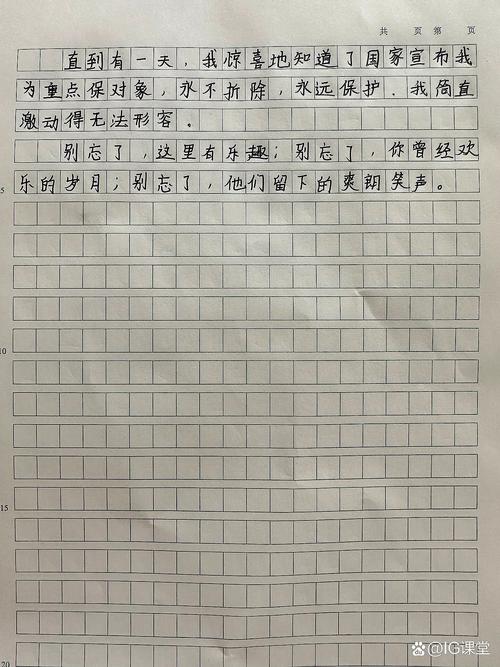 共 页 第 页
直到有一天，我惊喜地知道了国家宣布我
为重点保对象，永不折除，永远保护．我简直
激动得无法形容。
别忘了，这里有乐趣；别忘了，你曾经欢
5
乐的岁月；别忘了，他们留下的爽朗笑声。
10
15
20
@IG课堂